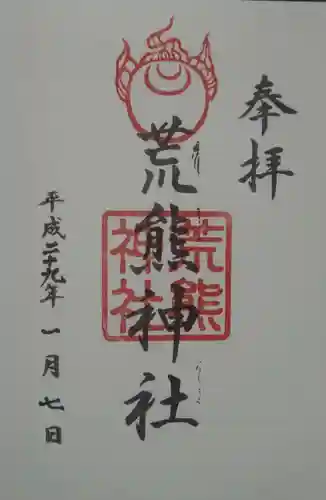 奉拝
荒熊神社
荒熊
神社
平成二十九年 一月 七日